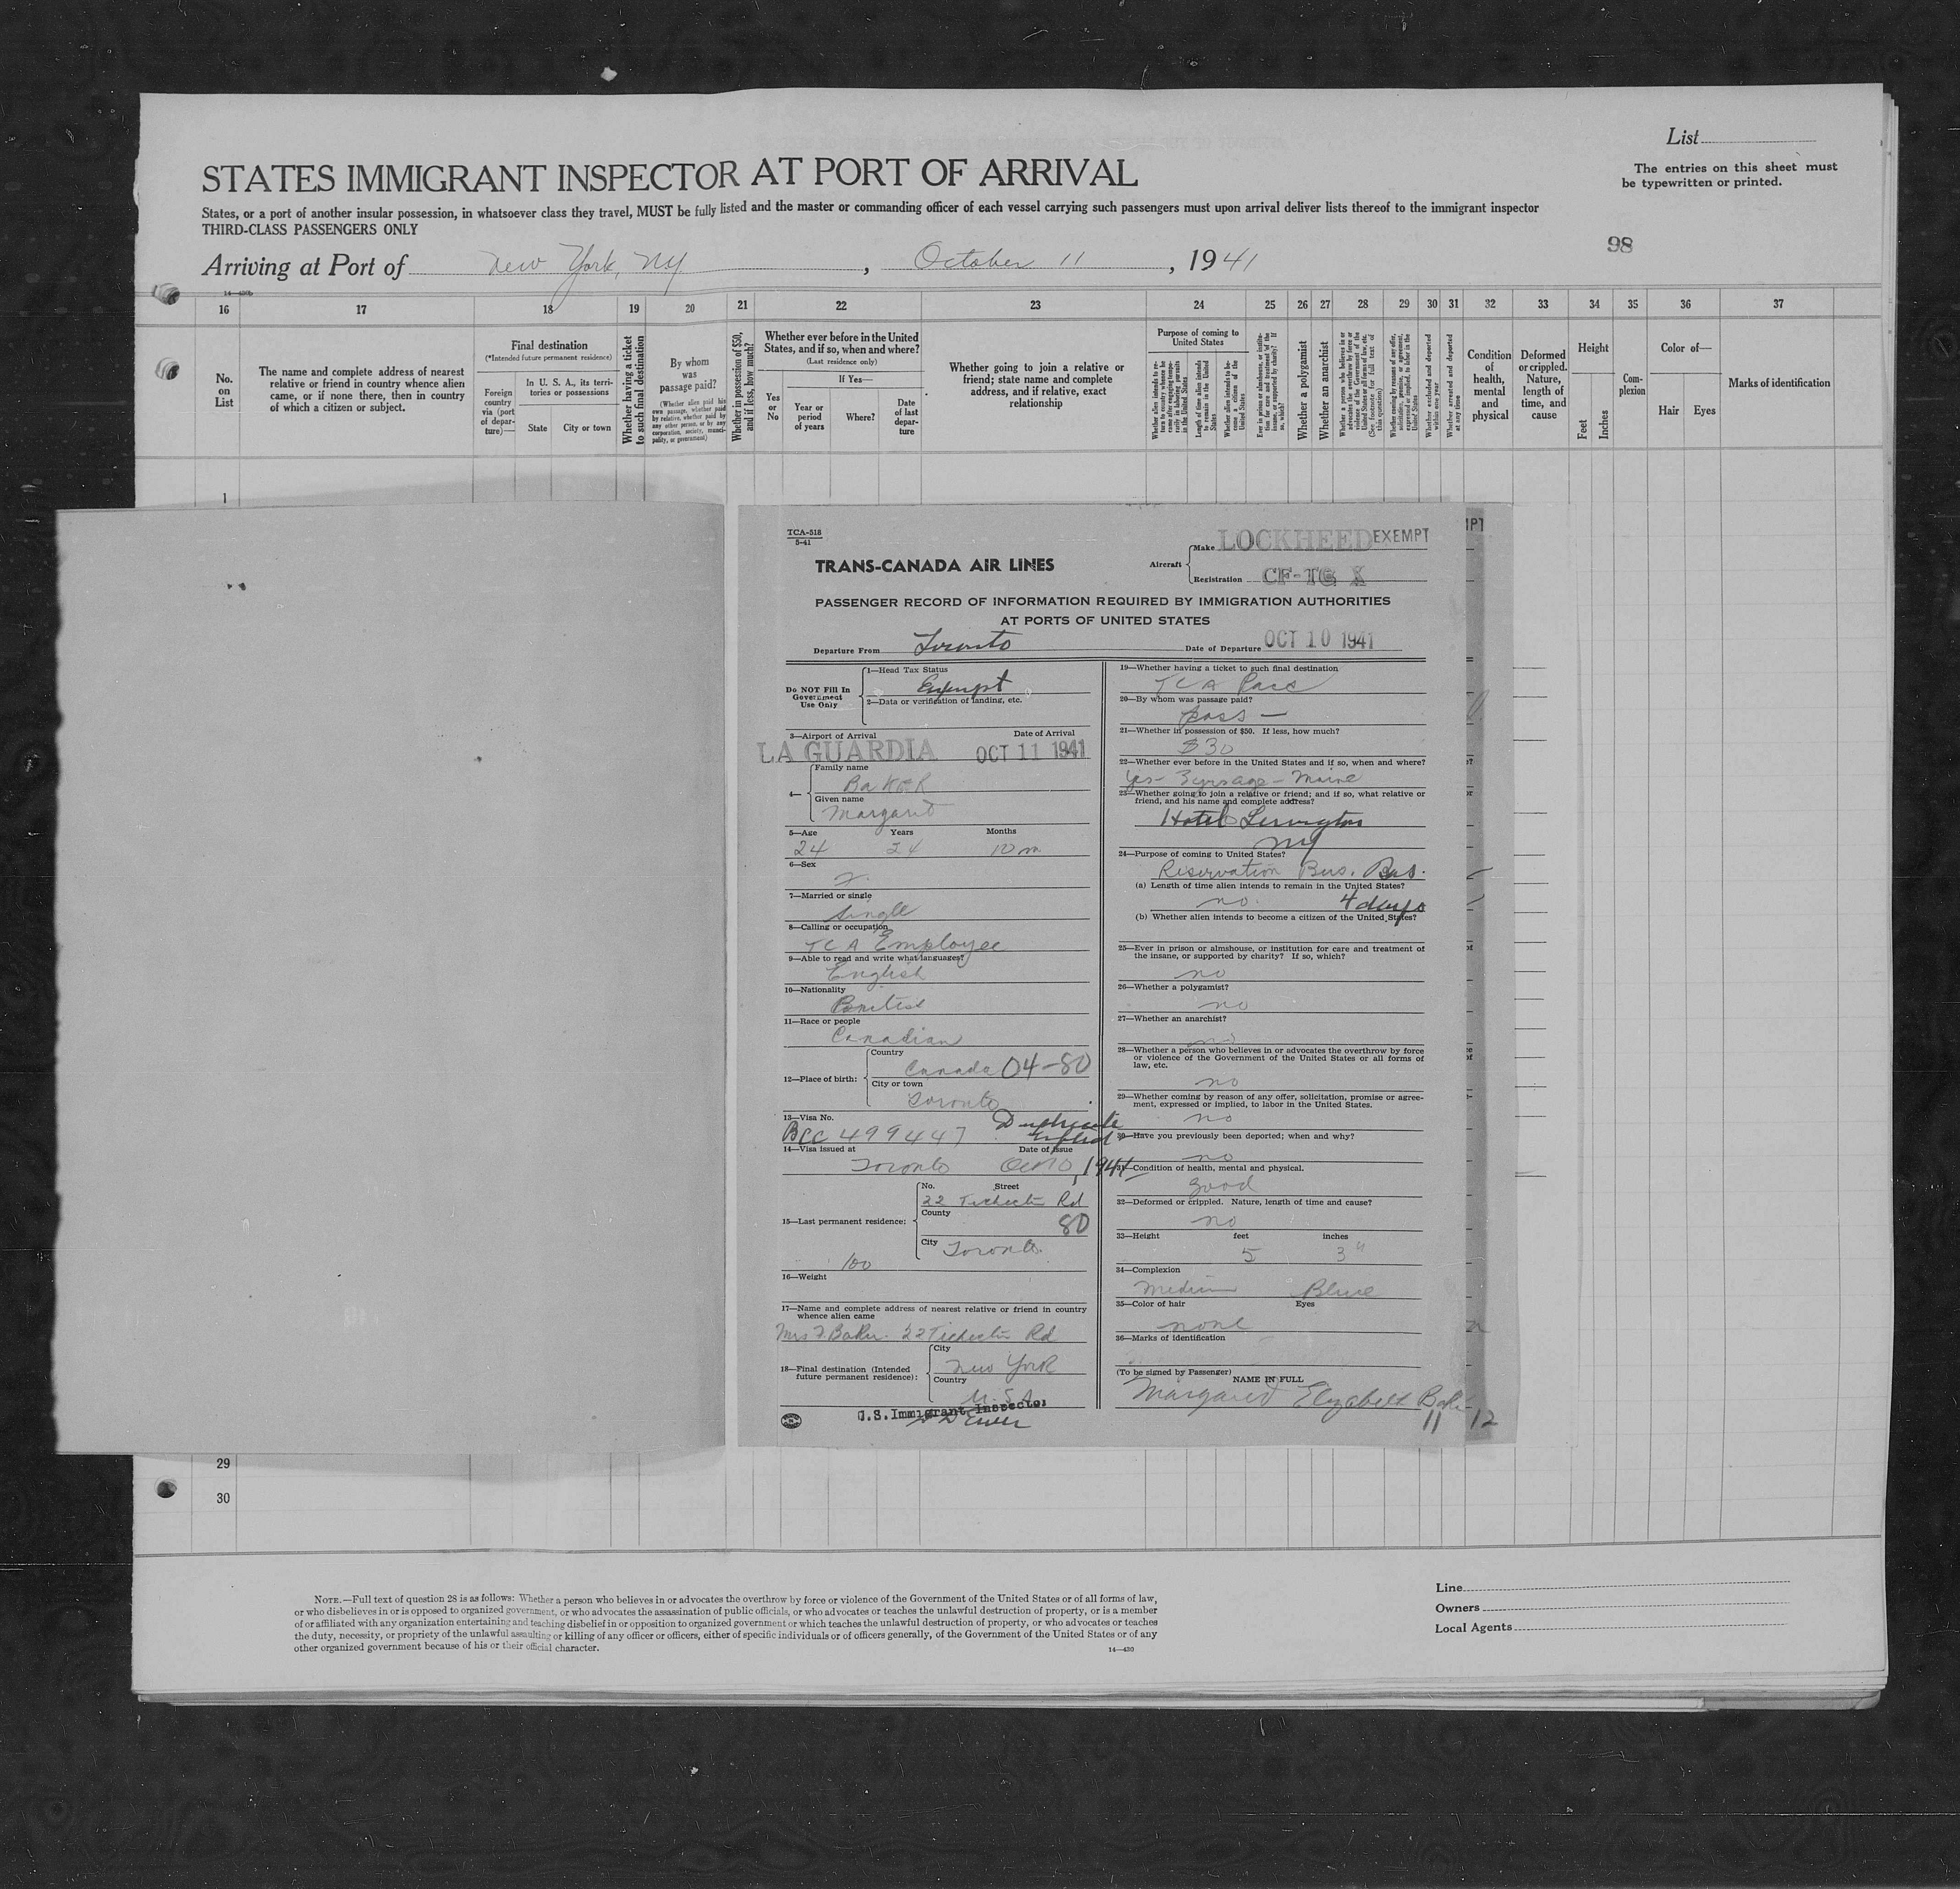 List
The entries on this sheet must
be typewritten or printed.
STATES IMMIGRANT INSPECTOR AT PORT OF ARRIVAL
States, or a port of another insular possession, in whatsoever class they travel, MUST be fully listed and the master or commanding officer of each vessel carrying such passengers must upon arrival deliver lists thereof to the immigrant inspector
THIRD-CLASS PASSENGERS ONLY
98
Arriving at Port of New York, NY, October 11, 1941
14—430
16 17 18 19 20 21 22 23 24 25 26 27 28 29 30 31 32 33 34 35 36 37
No.
on
List
The name and complete address of nearest
relative or friend in country whence alien
came, or if none there, then in country
of which a citizen or subject.
Final destination
(*Intended future permanent residence)
Foreign
country
via (port
of depar-
ture)—
In U. S. A., its terri-
tories or possessions
State
City or town
Whether having a ticket
to such final destination
By whom
was
passage paid?
(Whether alien paid his
own passage, whether paid
by relative, whether paid by
any other person, or by any
corporation, society, munici-
pality, or government)
Whether in possession of $50,
and if less, how much?
Whether ever before in the United
States, and if so, when and where?
(Last residence only)
Yes
or
No
If Yes—
Year or
period
of years
Where?
Date
of last
depar-
ture
Whether going to join a relative or
friend; state name and complete
address, and if relative, exact
relationship
Purpose of coming to
United States
Whether alien intends to re-
turn to country whence he
came after engaging tempo-
rarily in laboring pursuits
in the United States
Length of time alien intends
to remain in the United
States
Whether alien intends to be-
come a citizen of the
United States
Ever in prison or almshouse, or institu-
tion for care and treatment of the
insane, or supported by charity? If
so, which?
Whether a polygamist
Whether an anarchist
Whether a person who believes in or
advocates the overthrow by force or
violence of the Government of the
United States or all forms of law, etc.
(See footnote for full text of
this question)
Whether coming by reason of any offer,
solicitation, promise, or agreement,
expressed or implied, to labor in the
United States
Whether excluded and deported
within one year
Whether arrested and deported
at any time
Condition
of
health,
mental
and
physical
Deformed
or crippled.
Nature,
length of
time, and
cause
Height
Feet
Inches
Com-
plexion
Color of—
Hair
Eyes
Marks of identification
1
TCA-518
5-41
TRANS-CANADA AIR LINES
Aircraft
Make LOCKHEED EXEMPT
Registration CF-TG X
PASSENGER RECORD OF INFORMATION REQUIRED BY IMMIGRATION AUTHORITIES
AT PORTS OF UNITED STATES
Departure From Toronto Date of Departure OCT 10 1941
Do NOT Fill In
Government
Use Only
1—Head Tax Status
Exempt
2—Data or verification of landing, etc.
3—Airport of Arrival Date of Arrival
LA GUARDIA OCT 11 1941
4—
Family name
BaKER
Given name
Margaret
5—Age Years Months
24 24 10 m
6—Sex
7—Married or single
Single
8—Calling or occupation
TCA Employee
9—Able to read and write what languages?
English
10—Nationality
British
11—Race or people
Canadian
12—Place of birth:
Country
Canada 04-80
City or town
Toronto
13—Visa No.
BCC 499447 Duplicate
14—Visa issued at Date of Issue
Toronto Oct 10, 1941
15—Last permanent residence:
No. Street
22 Tichester Rd
County
80
City Toronto
100
16—Weight
17—Name and complete address of nearest relative or friend in country
whence alien came
Mrs F. Baker. 22 Tichester Rd
18—Final destination (Intended
future permanent residence):
City
New York
Country
U.S.A.
U.S. Immigrant Inspector
19—Whether having a ticket to such final destination
TCA Pass
20—By whom was passage paid?
pass —
21—Whether in possession of $50. If less, how much?
$30
22—Whether ever before in the United States and if so, when and where?
Yes - 3 yrs ago - Maine
23—Whether going to join a relative or friend; and if so, what relative or
friend, and his name and complete address?
Hotel Lexington
NY
24—Purpose of coming to United States?
Reservation Bus. Bus.
(a) Length of time alien intends to remain in the United States?
no. 4 days
(b) Whether alien intends to become a citizen of the United States?
25—Ever in prison or almshouse, or institution for care and treatment of
the insane, or supported by charity? If so, which?
no
26—Whether a polygamist?
no
27—Whether an anarchist?
no
28—Whether a person who believes in or advocates the overthrow by force
or violence of the Government of the United States or all forms of
law, etc.
no
29—Whether coming by reason of any offer, solicitation, promise or agree-
ment, expressed or implied, to labor in the United States.
no
30—Have you previously been deported; when and why?
no
31—Condition of health, mental and physical.
good
32—Deformed or crippled. Nature, length of time and cause?
no
33—Height feet inches
5 3"
34—Complexion
Medium Blue
35—Color of hair Eyes
none
36—Marks of identification
(To be signed by Passenger)
NAME IN FULL
Margaret Elizabeth Baker
11 12
29
30
NOTE.—Full text of question 28 is as follows: Whether a person who believes in or advocates the overthrow by force or violence of the Government of the United States or of all forms of law,
or who disbelieves in or is opposed to organized government, or who advocates the assassination of public officials, or who advocates or teaches the unlawful destruction of property, or is a member
of or affiliated with any organization entertaining and teaching disbelief in or opposition to organized government or which teaches the unlawful destruction of property, or who advocates or teaches
the duty, necessity, or propriety of the unlawful assaulting or killing of any officer or officers, either of specific individuals or of officers generally, of the Government of the United States or of any
other organized government because of his or their official character.
14—430
Line
Owners
Local Agents